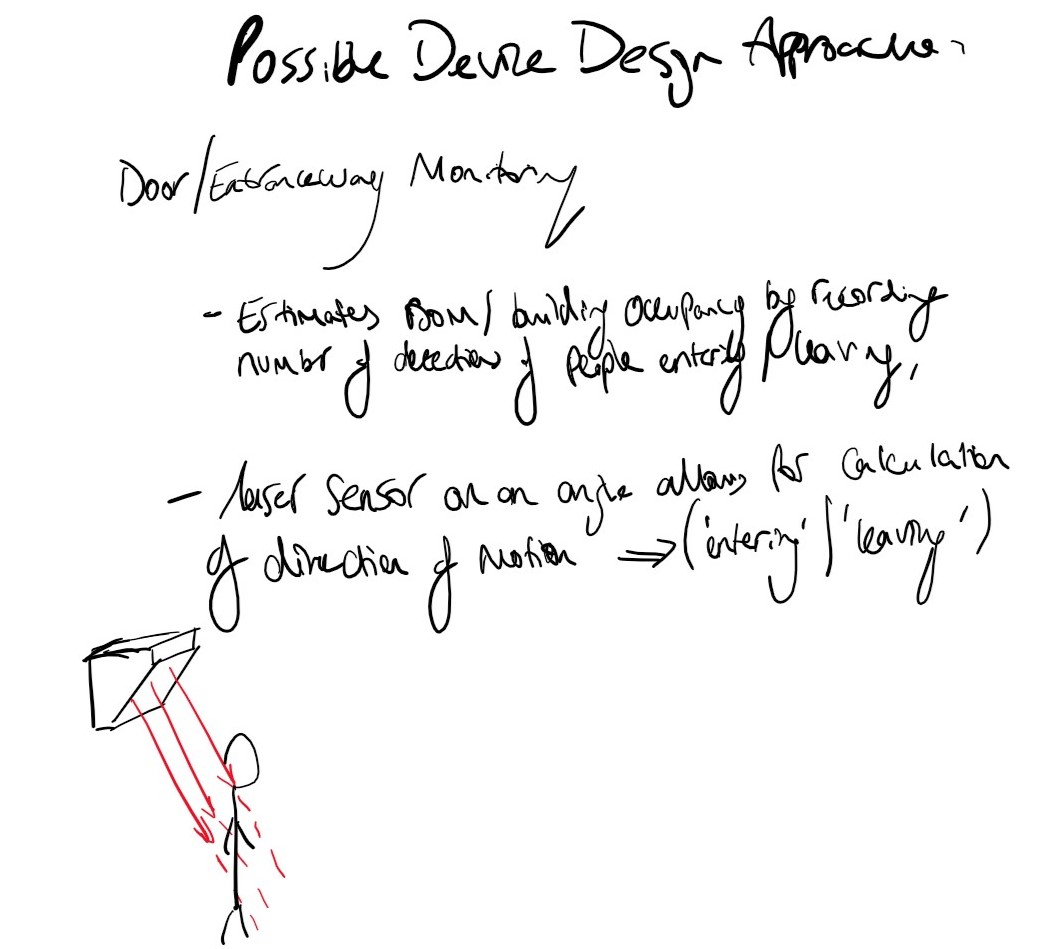 Possible Device Design Approaches
Door/Entranceway Monitoring
- Estimates Room/building Occupancy by recording
number of detections of people entering/leaving.
- laser sensor on an angle allows for calculation
of direction of motion ⇒ ('entering' | 'leaving')